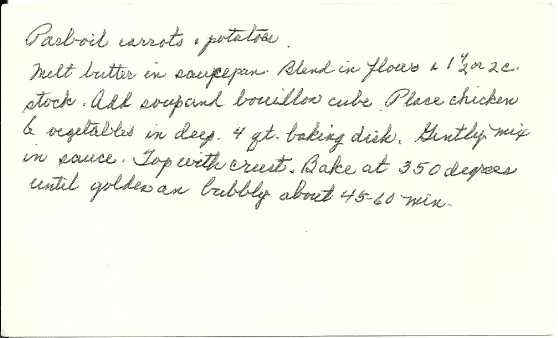 Parboil carrots & potatoes.
Melt butter in saucepan. Blend in flour & 1 1/2 or 2 c.
stock. Add soup and bouillon cube. Place chicken
& vegetables in deep. 4 qt. baking dish. Gently mix
in sauce. Top with crust. Bake at 350 degrees
until golden an bubbly about 45-60 min.